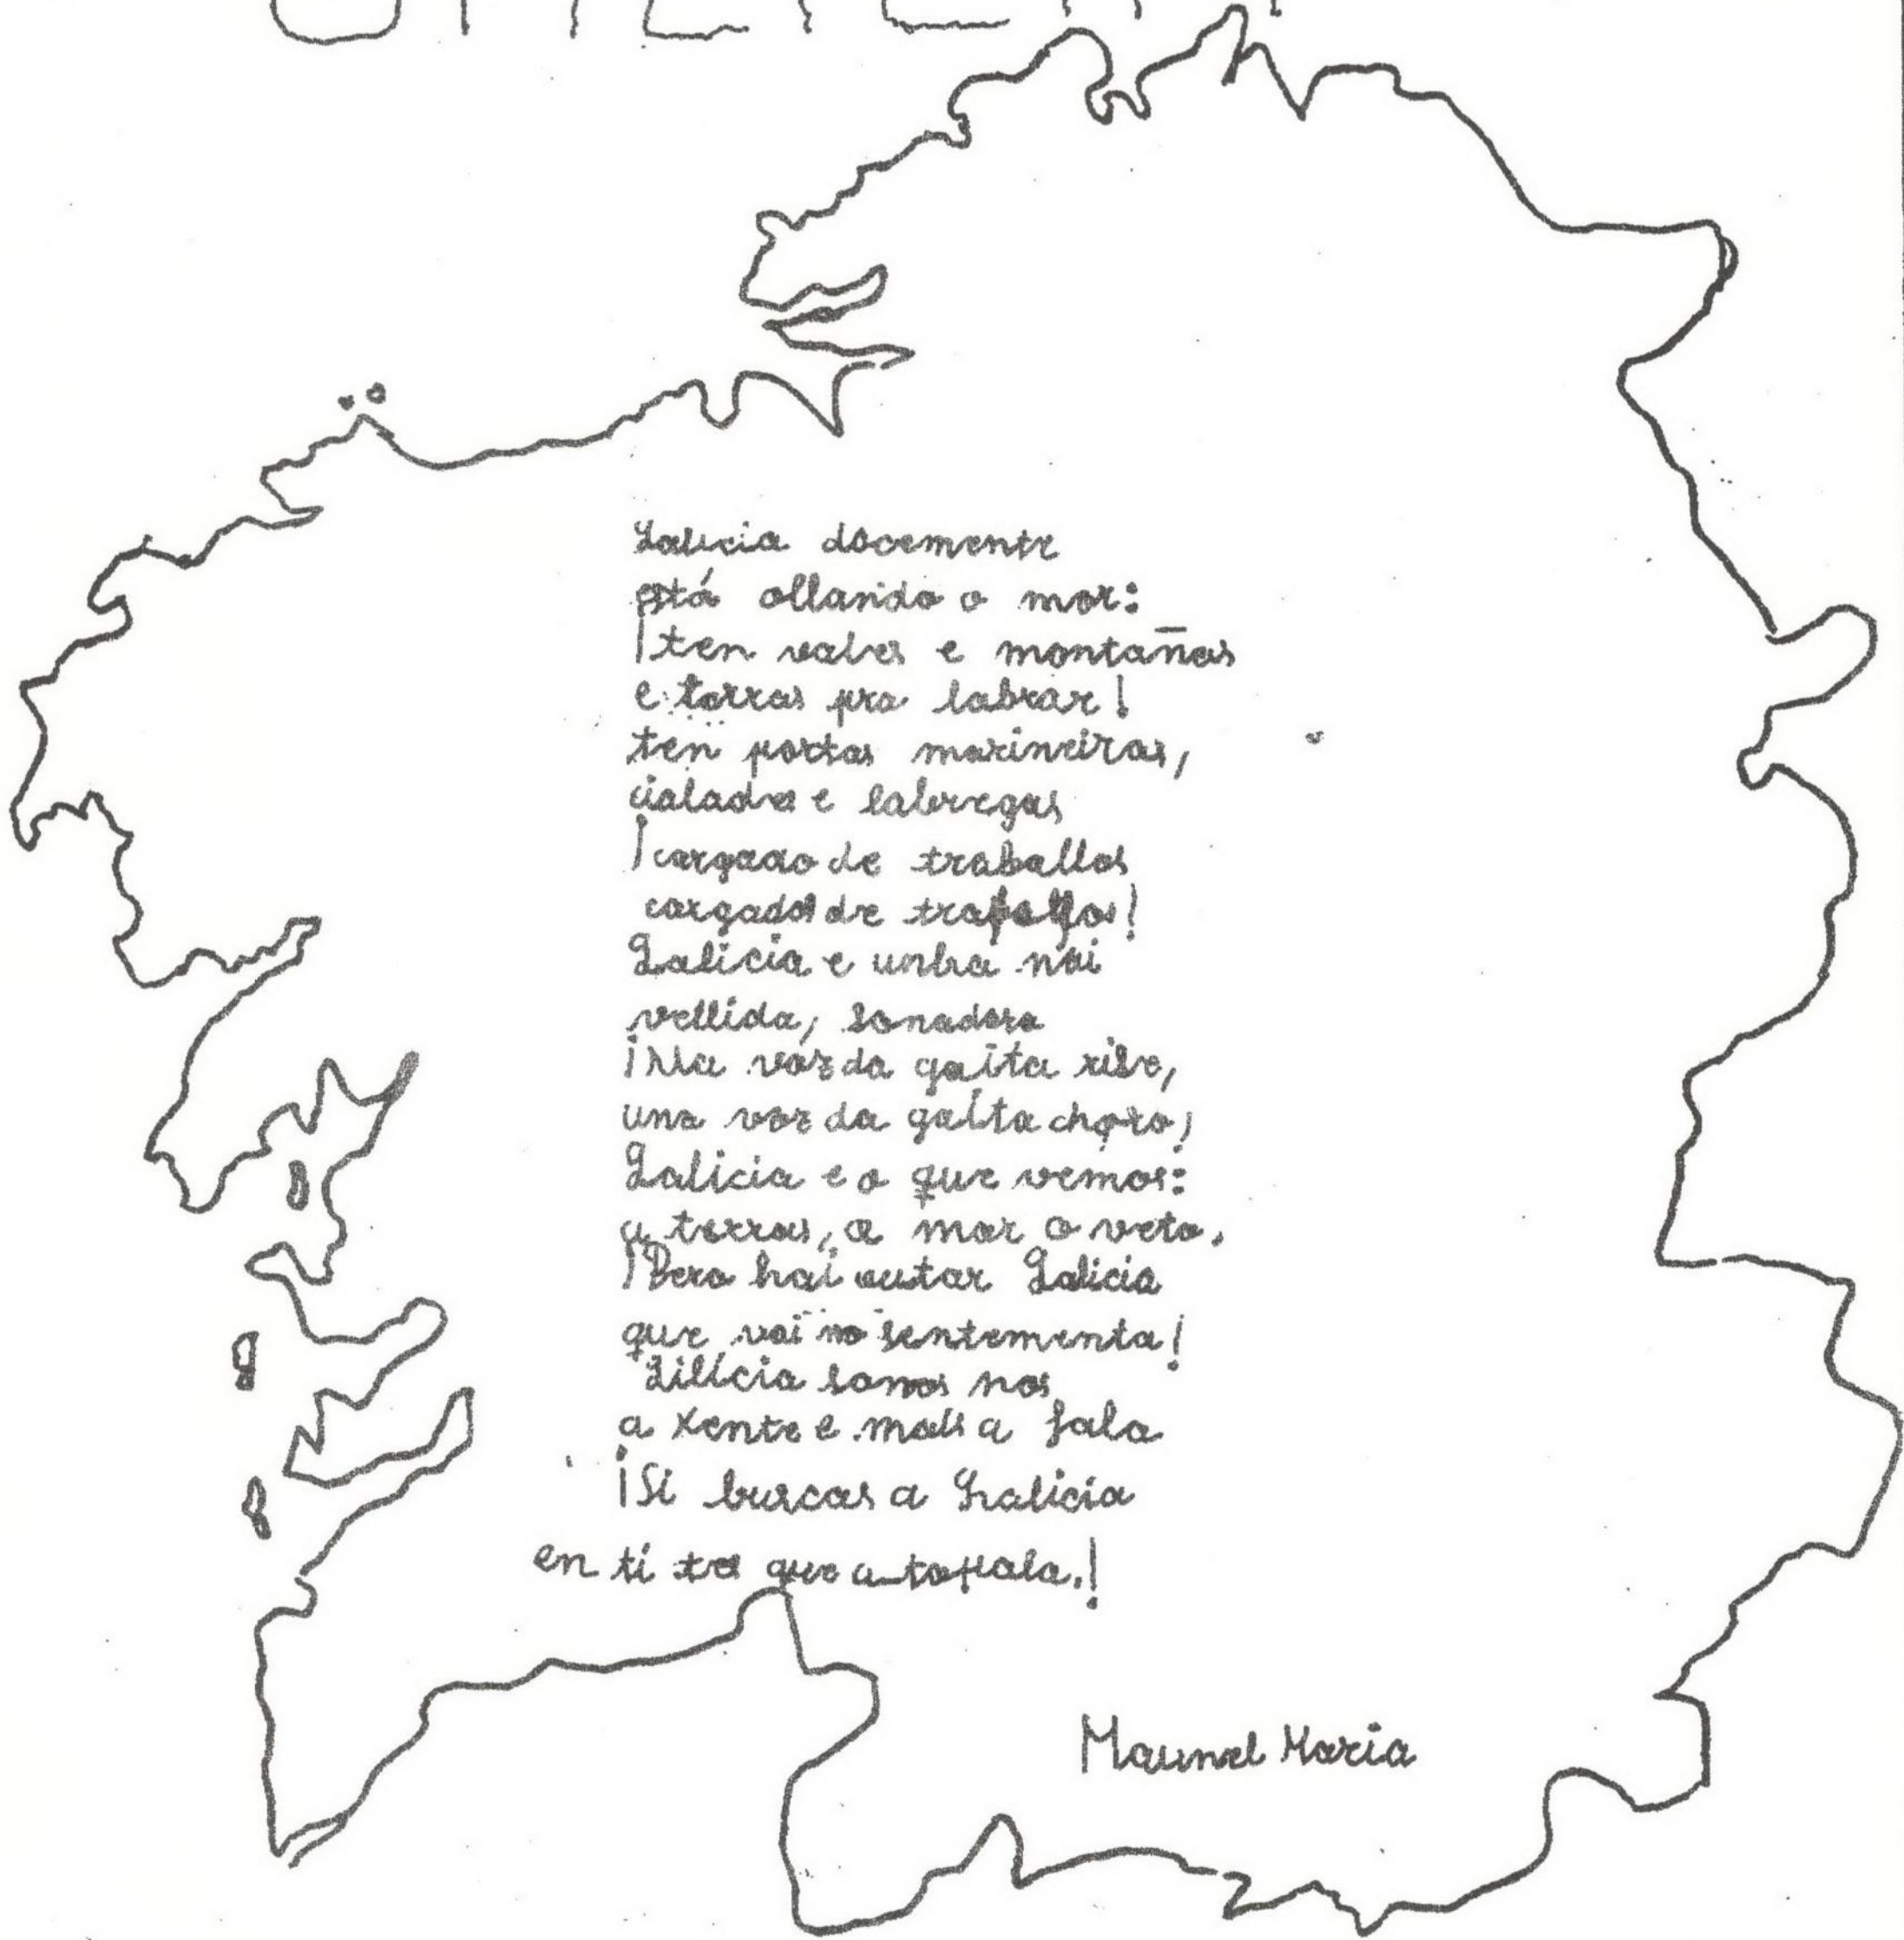 Galicia docemente
está ollando o mar:
¡ten vales e montañas
e terras pra labrar!
ten portas marineiras,
cidades e labregas
¡cargado de traballos
cargados de traballos!
Galicia e unha nai
vellida, sonadora
¡Na voz da gaita rise,
una voz da gaita choro,
Galicia e o que vemos:
a terras, a mar o veto.
¡Pero hai outar Galicia
que vai no sentementa!
Gilicia somos nos
a xente e mais a fala
¡Si buscas a Galicia
en ti te que a
Maunel Maria